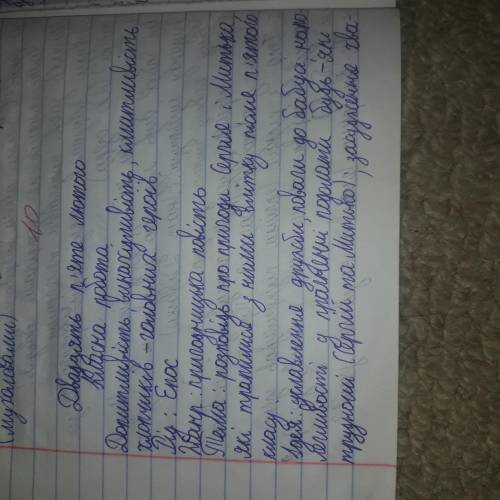 (Мугалявами)
10
Двадцять п'яте лютого
Класна робота
Допитливість, винахідливість, кмітливість
хлопчиків - головних героїв
Рід: Епос
Жанр: пригодницька повість
Тема: розповідь про пригоди Сергія і Митька,
які трапилися з ними влітку після п'ятого
класу
Ідея: уславлення дружби поваги до бабусі, напо-
легливості у прагненні подолати будь-які
труднощі (Сергій та Митько); засудження ква-